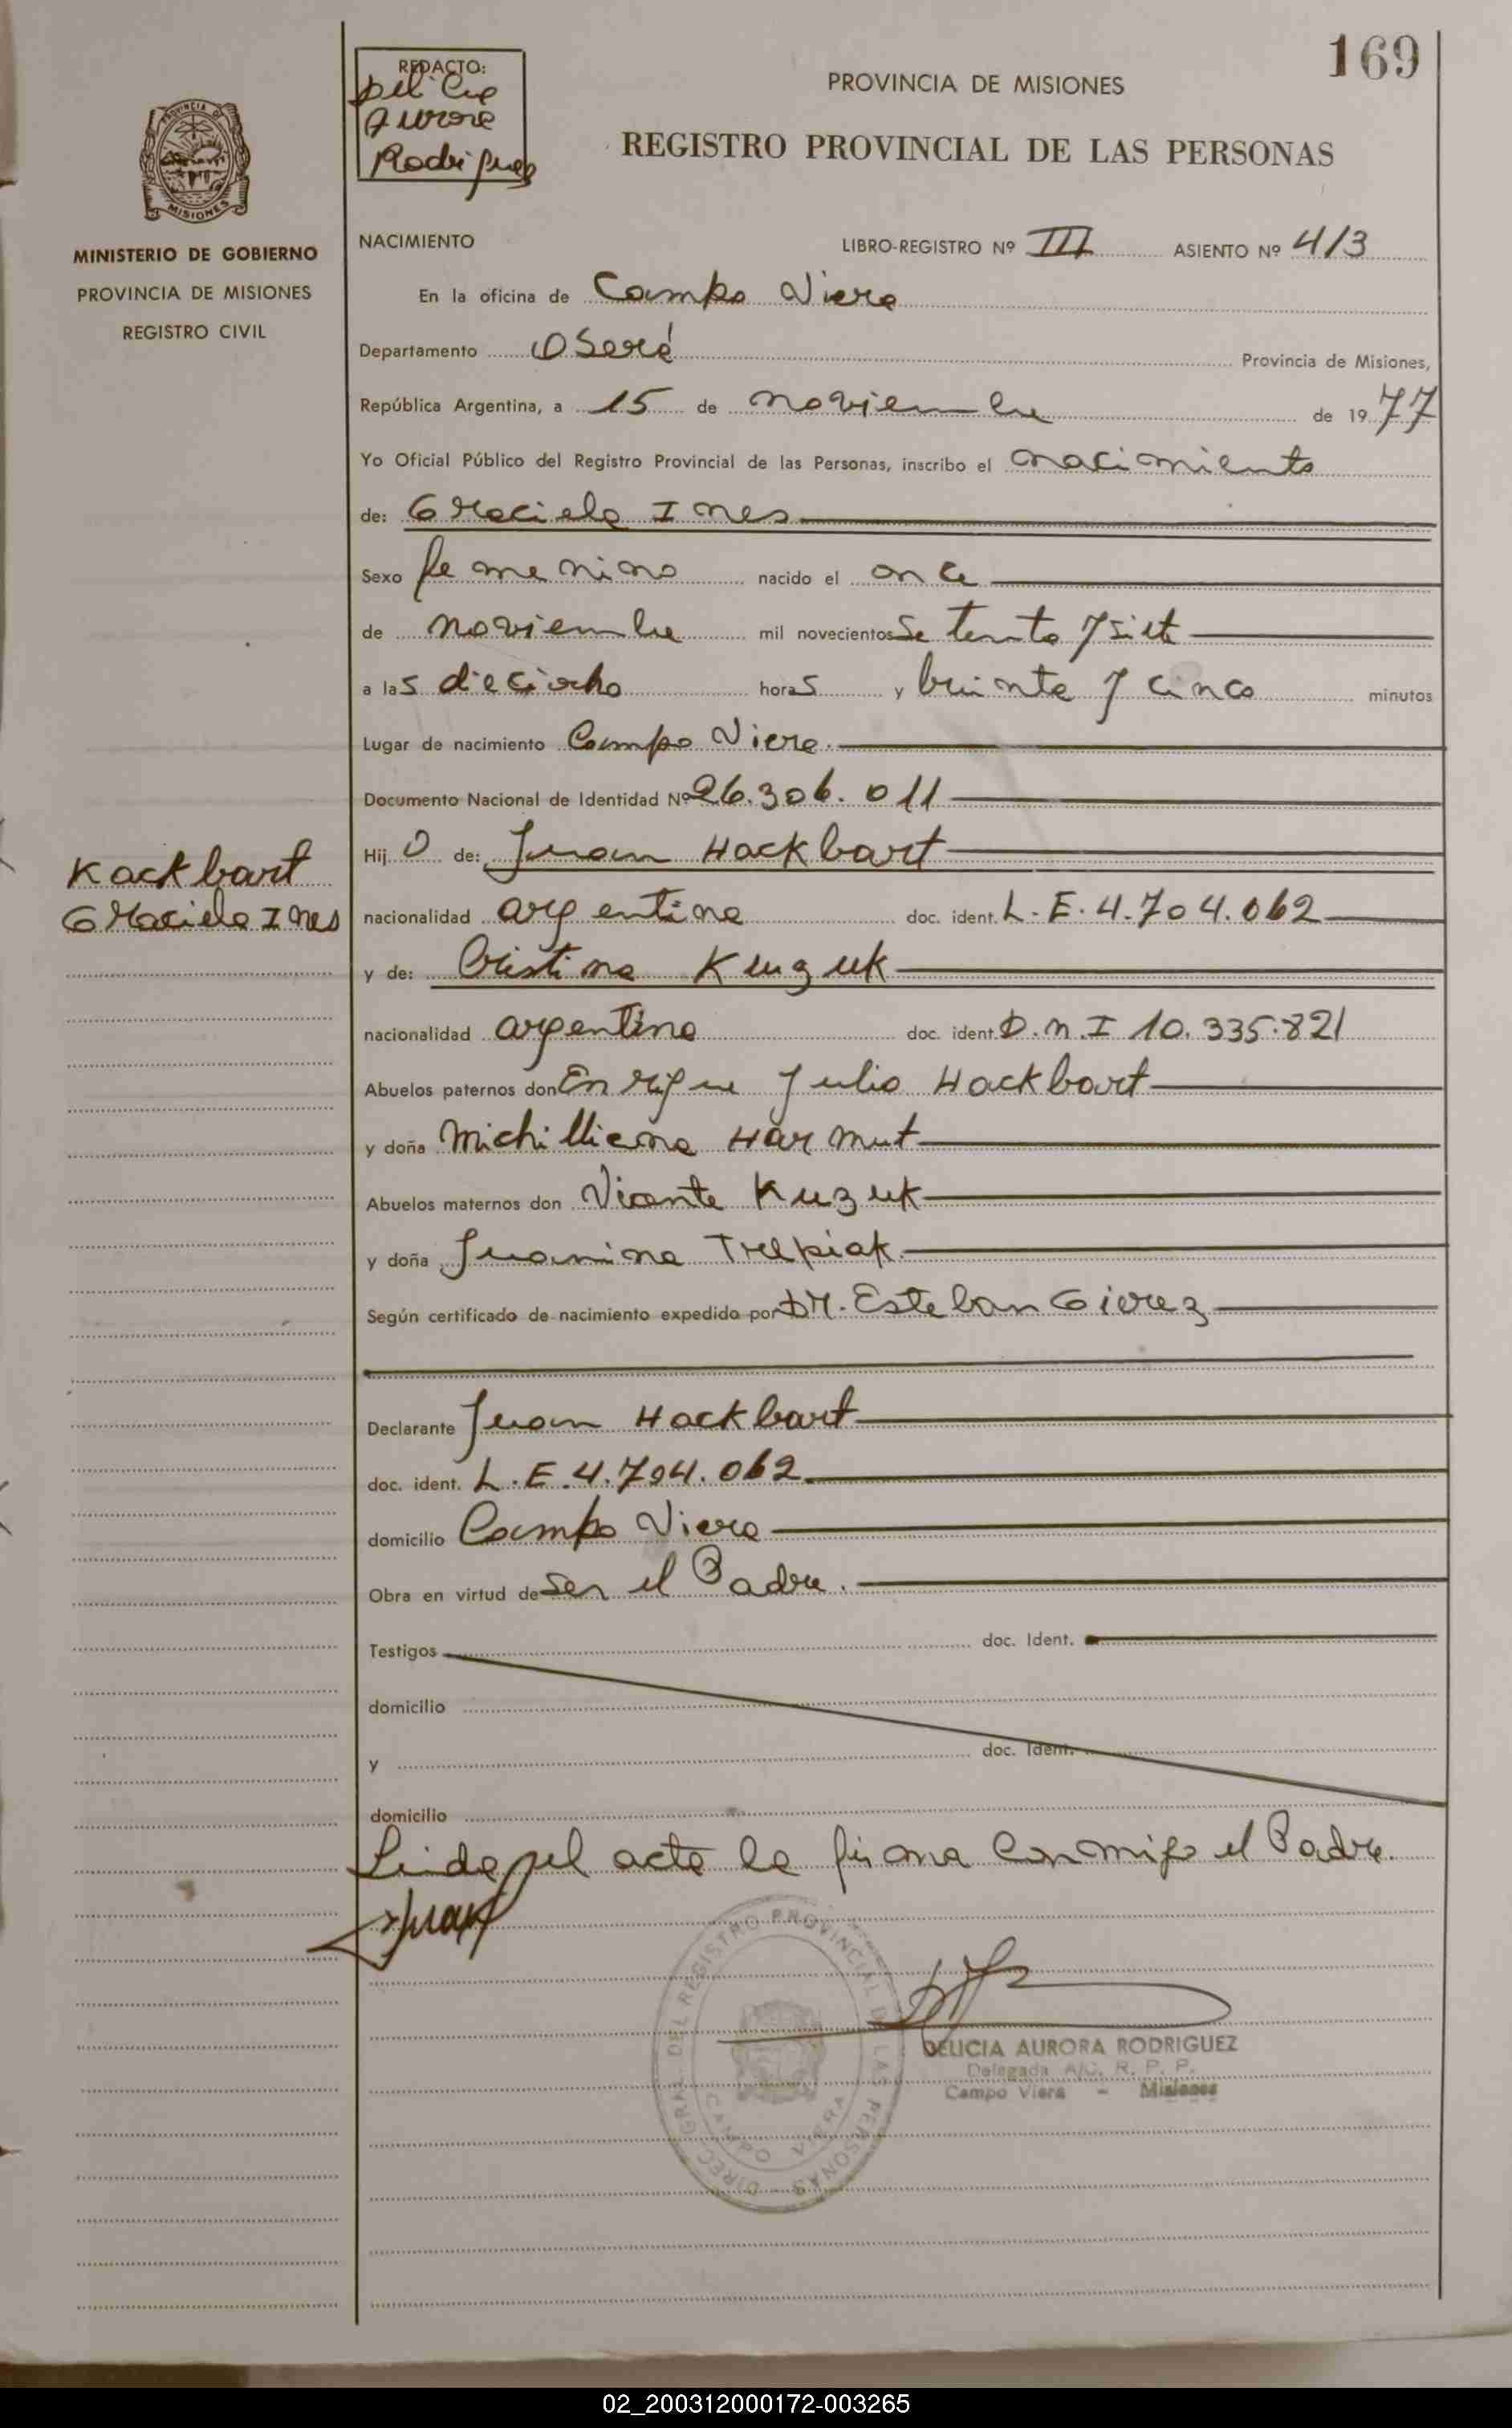 169
REDACTO:
Delicie
Aurora
Rodriguez
PROVINCIA DE MISIONES
REGISTRO PROVINCIAL DE LAS PERSONAS
PROVINCIA DE
MISIONES
MINISTERIO DE GOBIERNO
PROVINCIA DE MISIONES
REGISTRO CIVIL
NACIMIENTO LIBRO-REGISTRO Nº III ASIENTO Nº 413
En la oficina de Campo Viera
Departamento Oberá Provincia de Misiones,
República Argentina, a 15 de noviembre de 1977
Yo Oficial Público del Registro Provincial de las Personas, inscribo el nacimiento
de: Graciela Ines
Sexo femenino nacido el once
de noviembre mil novecientos setenta y siete
a las dieciocho horas y veinte y cinco minutos
Lugar de nacimiento Campo Viera.
Documento Nacional de Identidad Nº 26.306.011
Hijo de: Juan Hackbart
Kackbart
Graciela Ines
nacionalidad argentina doc. ident. L.E. 4.704.062
y de: Cristina Kuzuk
nacionalidad argentina doc. ident. D.N.I 10.335.821
Abuelos paternos don Enrique Julio Hackbart
y doña Michilliana Harmut
Abuelos maternos don Vicente Kuzuk
y doña Juanina Trelpiak.
Según certificado de nacimiento expedido por Dr. Esteban Gierez
Declarante Juan Hackbart
doc. ident. L.E. 4.704.062
domicilio Campo Viera
Obra en virtud de ser el Padre.
Testigos doc. Ident.
domicilio
y doc. Ident.
domicilio
Leida el acta la firma conmigo el Padre.
Juan
DIREC. GRAL. DEL REGISTRO PROVINCIAL DE LAS PERSONAS
CAMPO VIERA
DELICIA AURORA RODRIGUEZ
Delegada A/C. R. P. P.
Campo Viera - Misiones
02_200312000172-003265